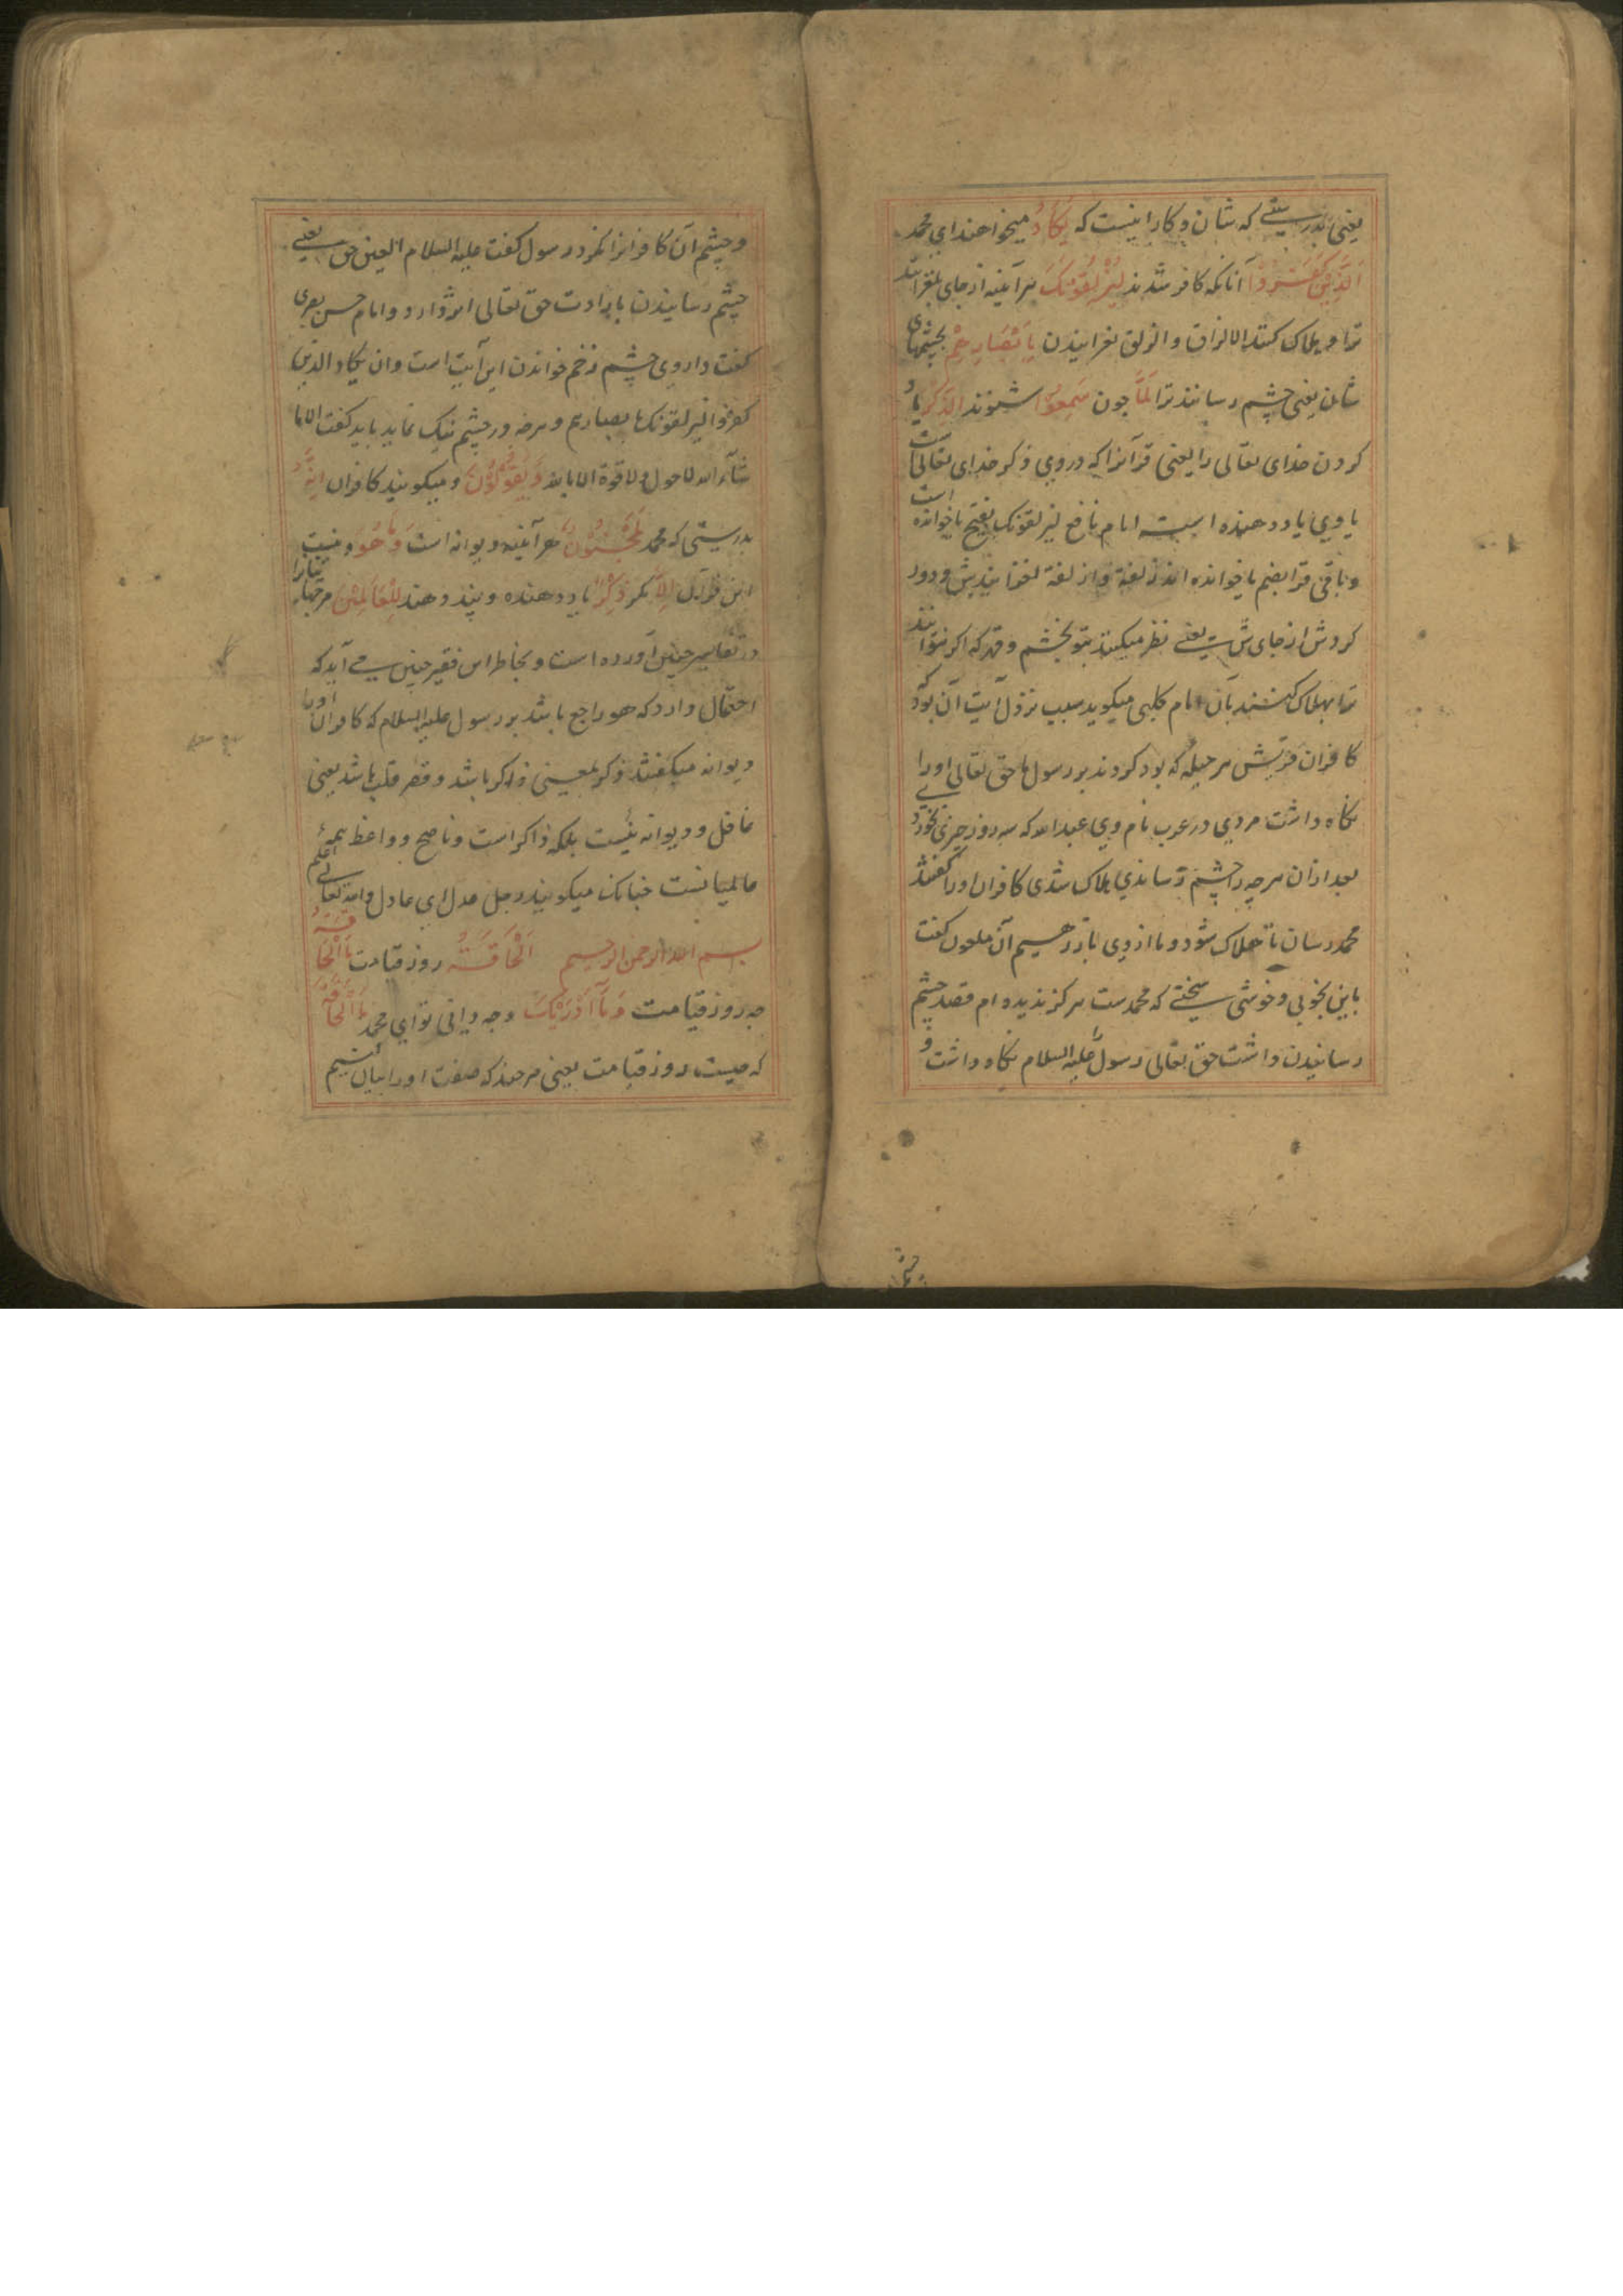 یعنی بدرستی که شان و کار اینست که یَکَادُ میخواهند ای محمد
اَلَّذِیْنَ کَفَرُوْا آنانکه کافر شدند لَیُزْلِقُوْنَکَ هرآینه از جای بلغزانند
ترا و هلاک کنند الازلاق و الزلق لغزانیدن بِاَبْصَارِهِمْ بچشمهای
شان یعنی چشم رسانند ترا لَمَّا چون سَمِعُوْا شنوند الذِّکْرَ یاد
کردن خدای تعالی را یعنی قرآنرا که در وی ذکر خدای تعالی است
یا وی یاد دهنده است امام نافع لیزلقونک بفتح یا خوانده است
و باقی قرا بضم یا خوانده اند زلقة و ازلقة لغزانیدش و دور
کردش از جای ش یعنی نظر میکنند بتو بخشم و قهر که اگر بتوانند
ترا بهلاک کنند بآن امام کلبی میگوید سبب نزول آیت آن بود که
کافران قریش هر حیله که بود کردند بر رسول ما حق تعالی او را
نگاه داشت مردی در عرب نام وی عبد الله که سه روز چیزی نخوردی
بعد ازان هر چه را چشم رساندی هلاک شدی کافران او را گفتند
محمد رسان تا هلاک شود و ما از وی باز رهیم آن ملعون گفت
باین بخوبی و خوشی سخنے که محمدست هرگز ندیده ام قصد چشم
رسانیدن داشت حق تعالی رسول علیه السلام نگاه داشت و
چشم
و چشم آن کافرانرا نکرد رسول گفت علیه السلام العین حق یعنے
چشم رسانیدن بارادت حق تعالی اثر دارد و امام حسن بصری
گفت داروی چشم زخم خواندن این آیت است وان یکاد الذین
کفروا لیزلقونک بابصارهم و هرچه در چشم نیک نماید باید گفت الا ما
شآء الله لا حول ولا قوة الا بالله وَیَقُوْلُوْنَ و میگویند کافران اِنَّهُ
بدرستی که محمد لَمَجْنُوْنٌ هرآینه دیوانه است وَمَا هُوَ و نیست
این قرآن اِلَّا مگر ذِکْرٌ یاد دهنده و پند دهنده لِلْعَالَمِیْنَ مر جهانیانرا
در تفاسیر چنین آورده است و بخاطر این فقیر چنین مے آید که
احتمال دارد که هو راجع باشد بر رسول علیه السلام که کافران او را
دیوانه میگفتند ذکر بمعنی ذاکر باشد و قصر قلب باشد یعنی
غافل و دیوانه نیست بلکه ذاکر است و ناصح و واعظ همۀ
عالمیانست چنانک میگویند رجل عدل ای عادل والله تعالے اعلم
بسم الله الرحمن الرحیم اَلْحَاقَّةُ روز قیامت مَا الْحَاقَّةُ
چه روز قیامت وَمَآ اَدْرٰیکَ و چه دانی تو ای محمد مَا الْحَاقَّةُ
که چیست روز قیامت یعنی هر چند که صفت او را بیان کنیم